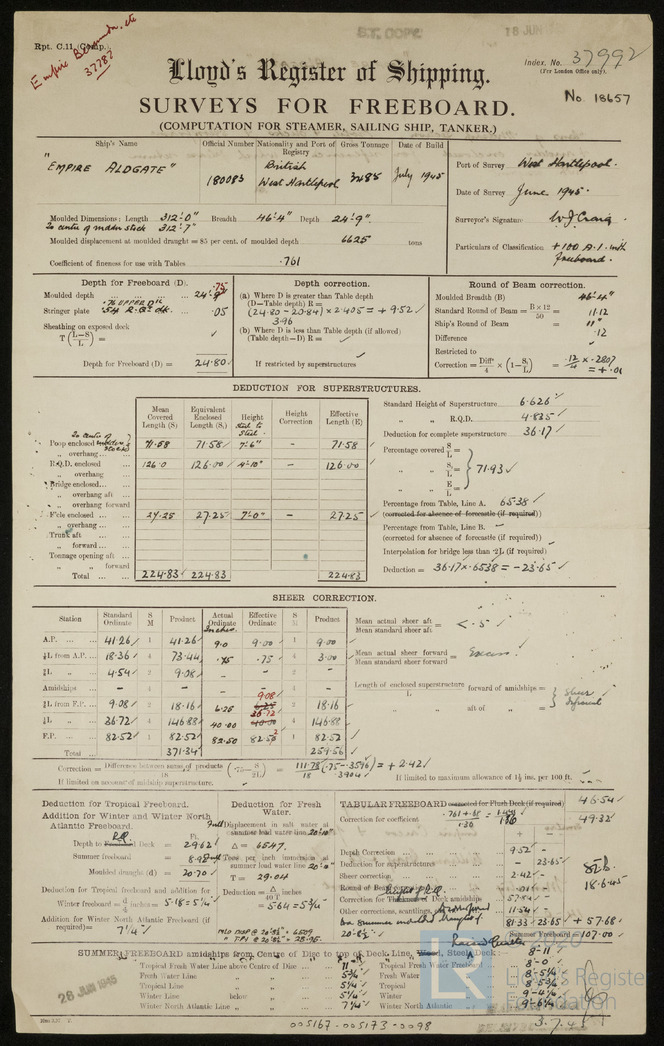 Rpt. C.11. (Comp.).
Empire Bermuda, etc
37787
S.T. COPY.
18 JUN
Index. No. 37992
(For London Office only).
Lloyd's Register of Shipping.
No. 18657
SURVEYS FOR FREEBOARD.
(COMPUTATION FOR STEAMER, SAILING SHIP, TANKER.)
Ship's Name Official Number Nationality and Port of Registry Gross Tonnage Date of Build
"EMPIRE ALDGATE" 180083 British West Hartlepool 3485 July 1945
Port of Survey West Hartlepool.
Date of Survey June 1945.
Surveyor's Signature W J Craig
Particulars of Classification +100 A.1. with freeboard.
Moulded Dimensions: Length 312'0" Breadth 46'4" Depth 24'9"
To centre of rudder stock 312'7"
Moulded displacement at moulded draught = 85 per cent. of moulded depth 6625 tons
Coefficient of fineness for use with Tables .761
Depth for Freeboard (D).
Moulded depth 24'9" .75
Stringer plate .05
Sheathing on exposed deck
T (L-S/L) =
Depth for Freeboard (D) = 24.80
Depth correction.
(a) Where D is greater than Table depth
(D—Table depth) R =
(24.80 - 20.84) × 2.405 = + 9.52
3.96
(b) Where D is less than Table depth (if allowed)
(Table depth—D) R =
If restricted by superstructures
Round of Beam correction.
Moulded Breadth (B) 46'4"
Standard Round of Beam = B × 12 / 50 = 11.12
Ship's Round of Beam = 11"
Difference .12
Restricted to
Correction = Diffce/4 × (1 - S₁/L) = .12/4 × .2807 = +.01
DEDUCTION FOR SUPERSTRUCTURES.
Mean Covered Length (S) Equivalent Enclosed Length (S₁) Height Height Correction Effective Length (E)
Poop enclosed 71.58 71.58 7'6" - 71.58
" overhang
R.Q.D. enclosed 126.0 126.00 4'10" - 126.00
" overhang
Bridge enclosed
" overhang aft
" overhang forward
F'cle enclosed 27.25 27.25 7'0" - 27.25
" overhang
Trunk aft
" forward
Tonnage opening aft
" " forward
Total 224.83 224.83 224.83
Standard Height of Superstructure 6.626
" " R.Q.D. 4.835
Deduction for complete superstructure 36.17
Percentage covered S/L =
" " S₁/L = 71.93
" " E/L =
Percentage from Table, Line A. 65.38
(corrected for absence of forecastle (if required))
Percentage from Table, Line B. -
(corrected for absence of forecastle (if required))
Interpolation for bridge less than .2L (if required)
Deduction = 36.17 × .6538 = - 23.65
SHEER CORRECTION.
Station Standard Ordinate S M Product Actual Ordinate Effective Ordinate S M Product
Inches.
A.P. 41.26 1 41.26 9.0 9.00 1 9.00
⅙L from A.P. 18.36 4 73.44 .75 .75 4 3.00
⅓L " 4.54 2 9.08 - - 2 -
Amidships - 4 - - - 4 -
⅓L from F.P. 9.08 2 18.16 6.25 9.08 2 18.16
⅙L " 36.72 4 146.88 40.00 36.72 4 146.88
F.P. 82.52 1 82.52 82.50 82.52 1 82.52
Total 371.34 259.56
Mean actual sheer aft / Mean standard sheer aft = < .5
Mean actual sheer forward / Mean standard sheer forward = Excess
Length of enclosed superstructure / L forward of amidships =
" " aft of " =
Sheer Deficient
Correction = Difference between sums of products / 18 (.75 - S/2L) = 111.78/18 (.75 - .3596) = + 2.42
.3904
If limited on account of midship superstructure.
If limited to maximum allowance of 1½ ins. per 100 ft.
Deduction for Tropical Freeboard.
Addition for Winter and Winter North Atlantic Freeboard.
Depth to Deck = 29.62
Summer freeboard = 8.92
Moulded draught (d) = 20.70
Deduction for Tropical freeboard and addition for
Winter freeboard = d/4 inches = 5.18 = 5¼"
Addition for Winter North Atlantic Freeboard (if required) =
7¼"
Deduction for Fresh Water.
Displacement in salt water at summer load water line 20'10"
Δ = 6547.
Tons per inch immersion at summer load water line
T = 29.04
Deduction = Δ / 40 T inches
= 5.64 = 5¾"
TABULAR FREEBOARD corrected for Flush Deck (if required) 46.54
Correction for coefficient .761 + .68 / 1.36 49.32
+ -
Depth Correction 9.52 -
Deduction for superstructures - 23.65
Sheer correction 2.42 -
Round of Beam correction .01 -
Correction for Thickness of Deck amidships 57.84 -
Other corrections, scantlings, 11.54 -
81.33 23.65 + 57.68
Summer Freeboard = 107.00
18.6.45
SUMMER FREEBOARD amidships from Centre of Disc to top of Deck Line, Wood, Steel Deck:
Tropical Fresh Water Line above Centre of Disc 11" Tropical Fresh Water Freeboard 8-0
Fresh Water Line " " 5¾" Fresh Water " 8-5¼
Tropical Line " " 5¼" Tropical " 8-5¾
Winter Line below " 5¼" Winter " 9-4¼
Winter North Atlantic Line " " 7¼" Winter North Atlantic " 9-6¼
28 JUN 1945
3.7.45
Lloyd's Register Foundation
005167-005173-0098